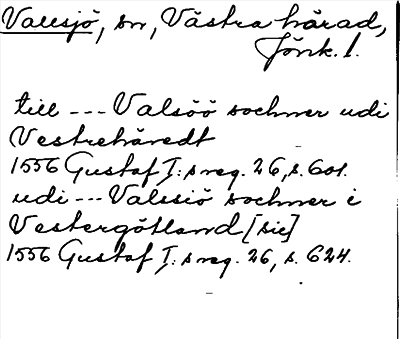 Vallsjö, sn, Västra härad,
Jönk. l.
till --- Valsöö sochner udi
Vestrehäredt
1556 Gustaf I:s reg. 26, s. 601.
udi --- Valssiö sochner i
Vestergötland [sic]
1556 Gustaf I:s reg. 26, s. 624.